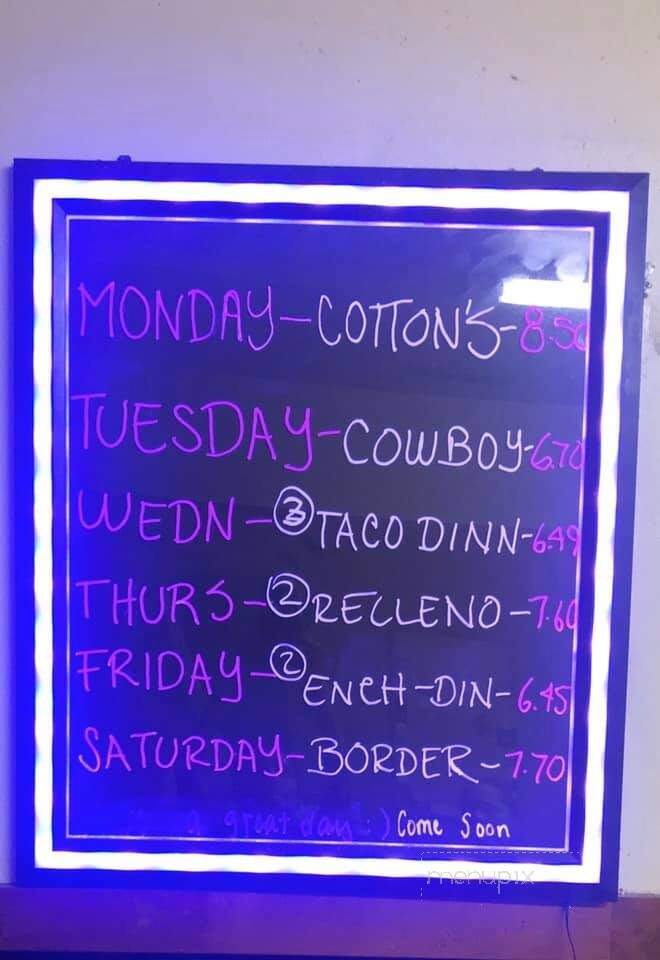 MONDAY-COTTON'S-8.50
TUESDAY-COWBOY-6.70
WEDN-3 TACO DINN-6.49
THURS-2 RELLENO-7.60
FRIDAY-2 ENCH-DIN-6.45
SATURDAY-BORDER-7.70
a great day :) Come Soon
menupix